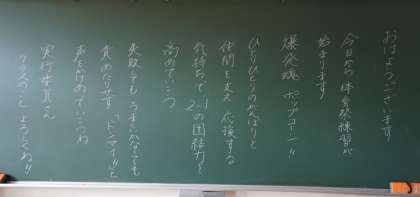 おはようございます
今日から体育祭練習が
始まります
爆発魂 ポップコーン!!
ひとりひとりのがんばりと
仲間を支え 応援する
気持ちで 2-1の団結力を
高めていこう
失敗しても うまくいかなくても
責めたりせず 「ドンマイ!!」と
声をかけていこうね
実行委員さん
クラスのこと よろしくね!!